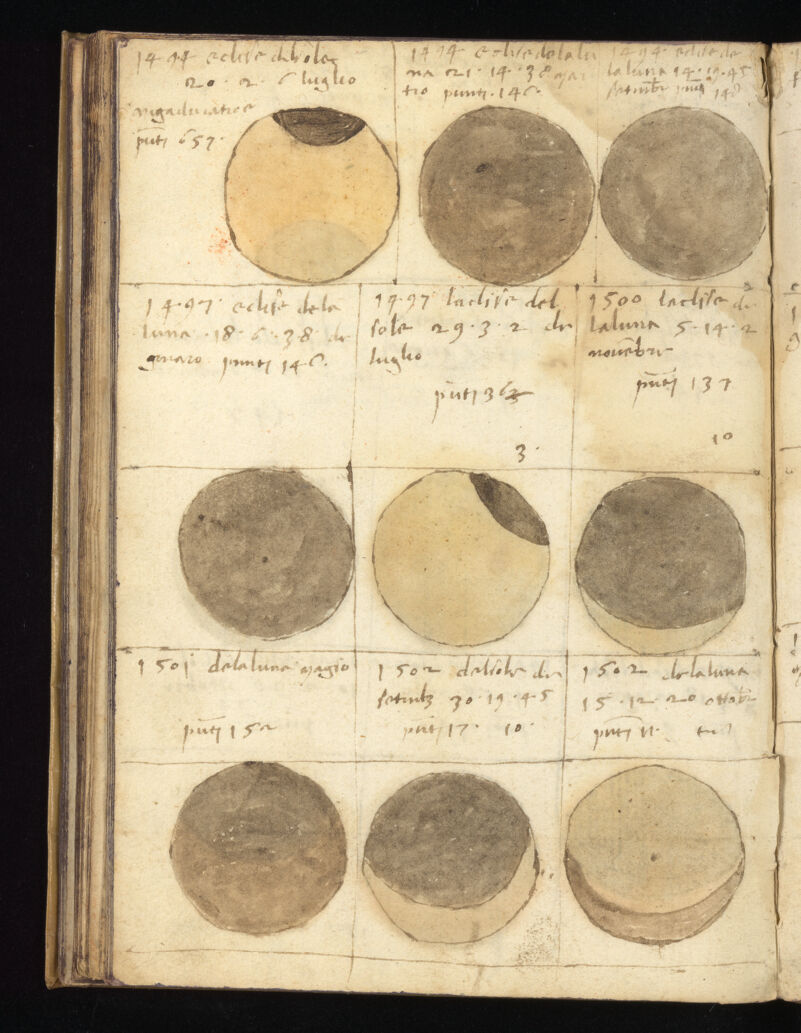 1494 eclise di sole
20 · 2 · 6 luglio
punti 657 ·
1494 eclise de la lu
na 21 · 14 · 38 mar
tio punti · 146 ·
1494 eclise de
la luna 14 · 19 · 45
setembr punti 148
1497 eclise de la
luna · 18 · 6 · 38 · de
genaro punti 146 ·
1497 laclise del
sole 29 · 3 · 2 de
luglio
punti 363
3 ·
1500 laclise de
la luna 5 · 14 · 2
novēbre
punti 137
10
1501 de la luna magio
punti 152
1502 del sole de
setenb 30 · 19 · 45
punti 17 · 10 ·
1502 de la luna
15 · 12 · 20 ottobr
punti 11 ·